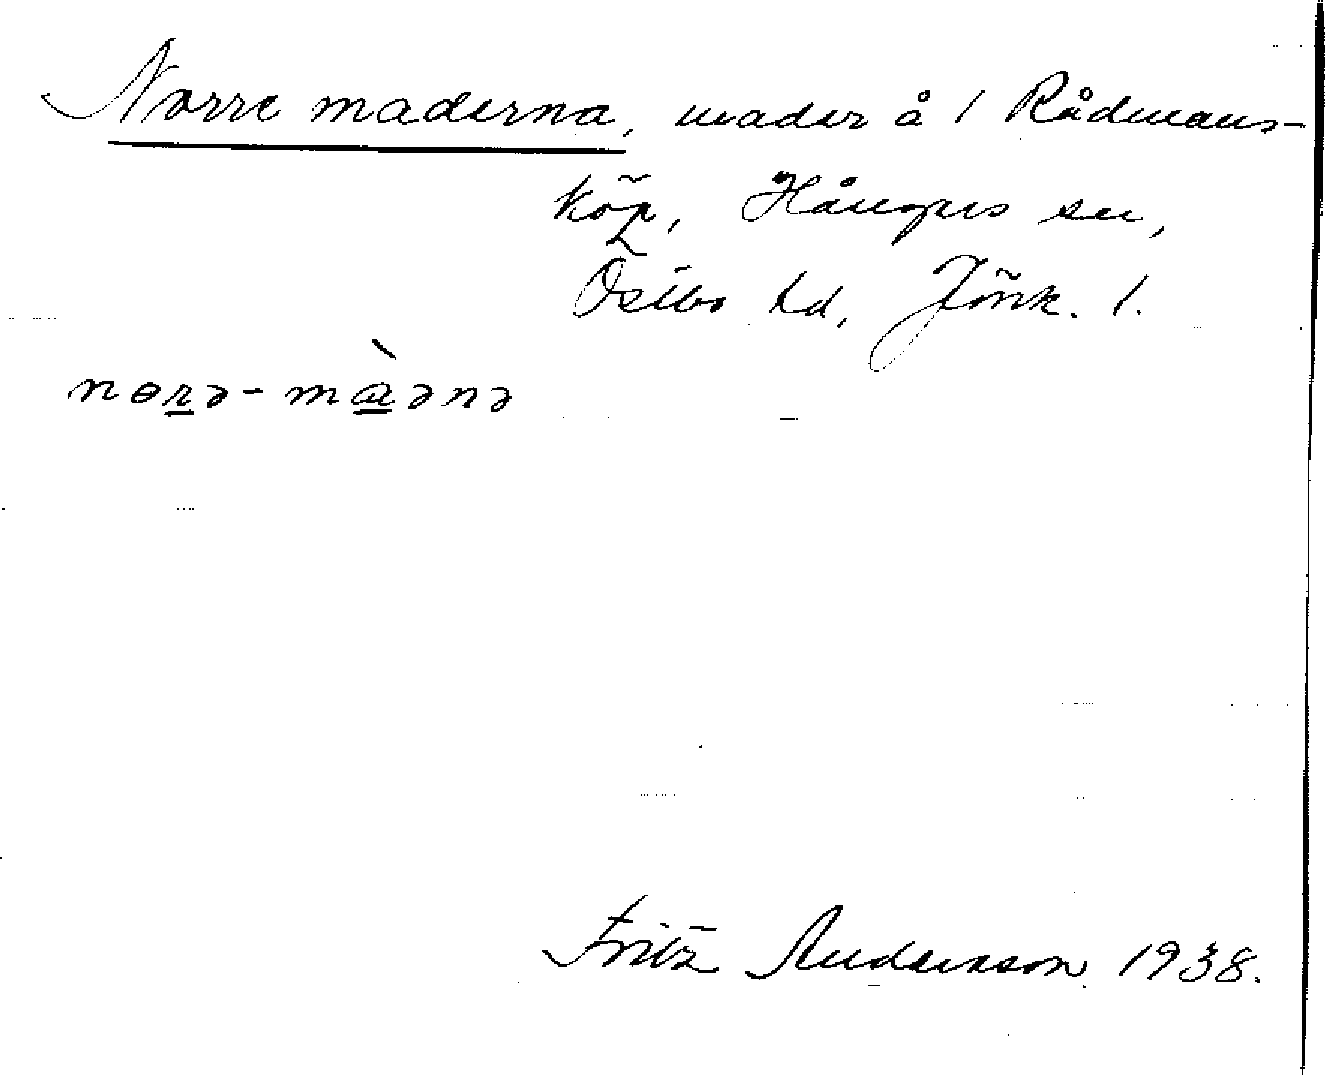 Norre maderna, mader å 1 Rådmans-
köp, Hångers sn,
Östbo hd, Jönk. l.
nɵrə-màənə
Fritz Andersson 1938.